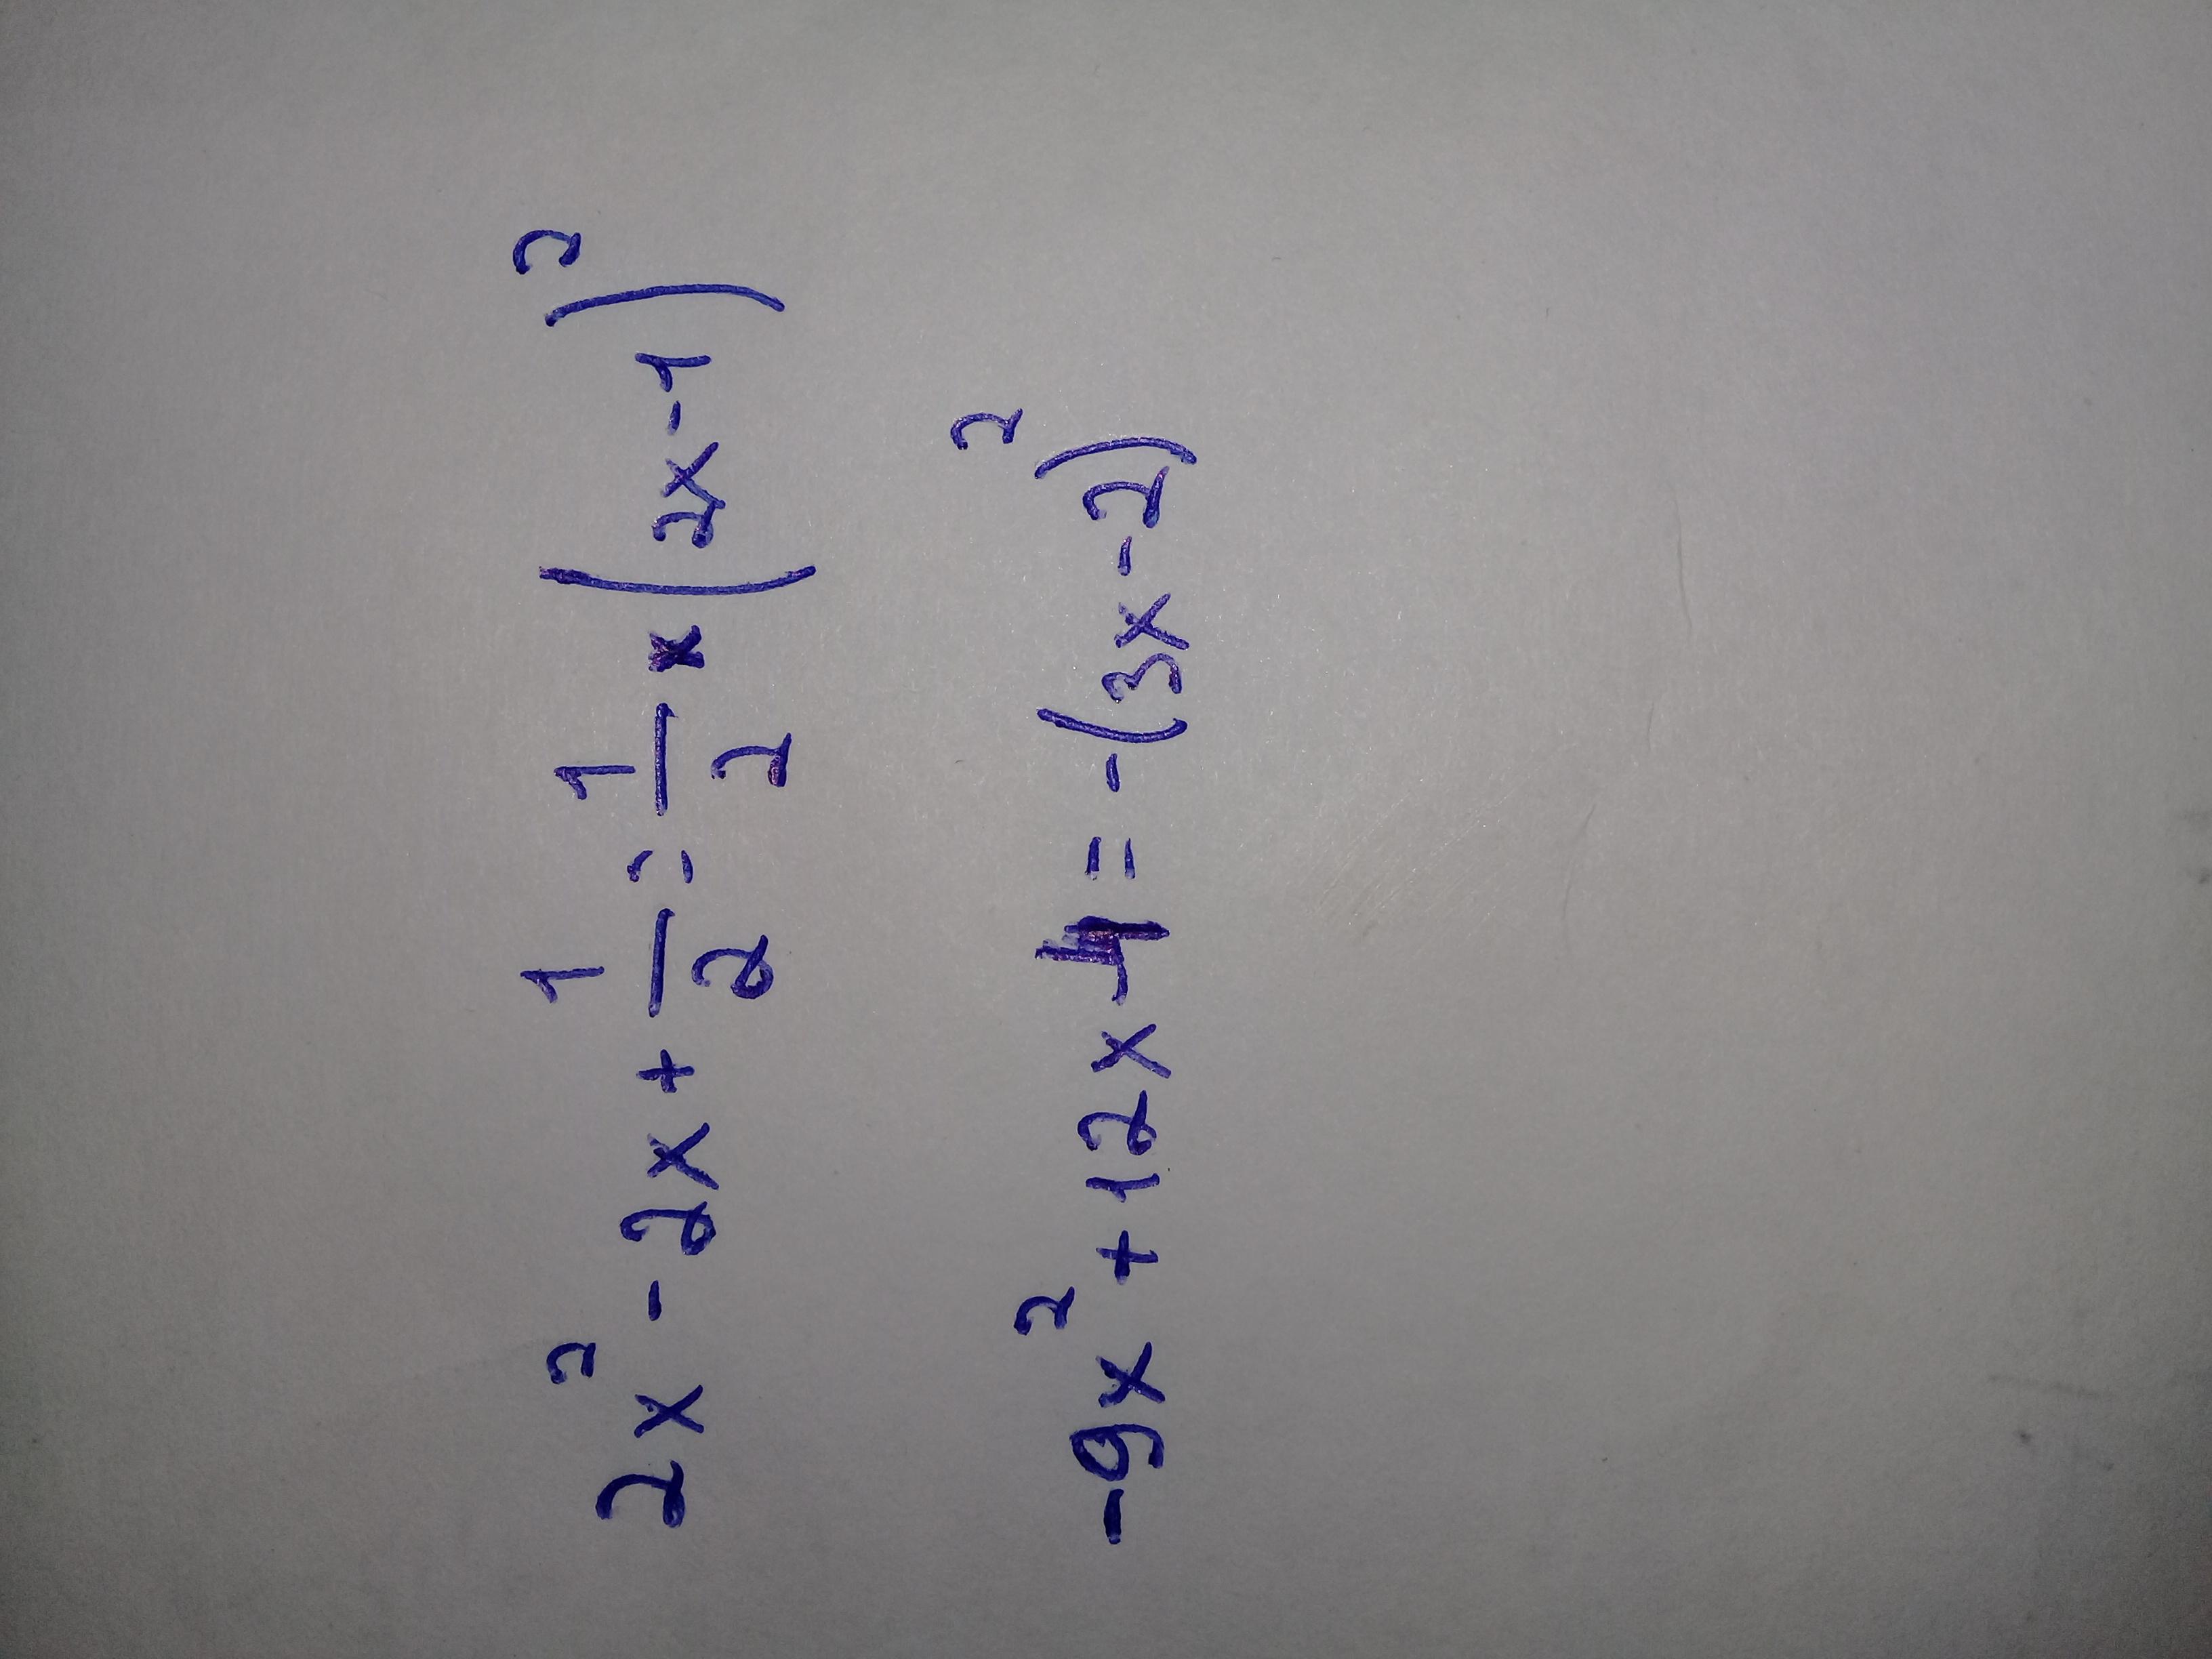 2x² - 2x + 1/2 = 1/2 × (2x-1)²
-9x² + 12x - 4 = -(3x-2)²